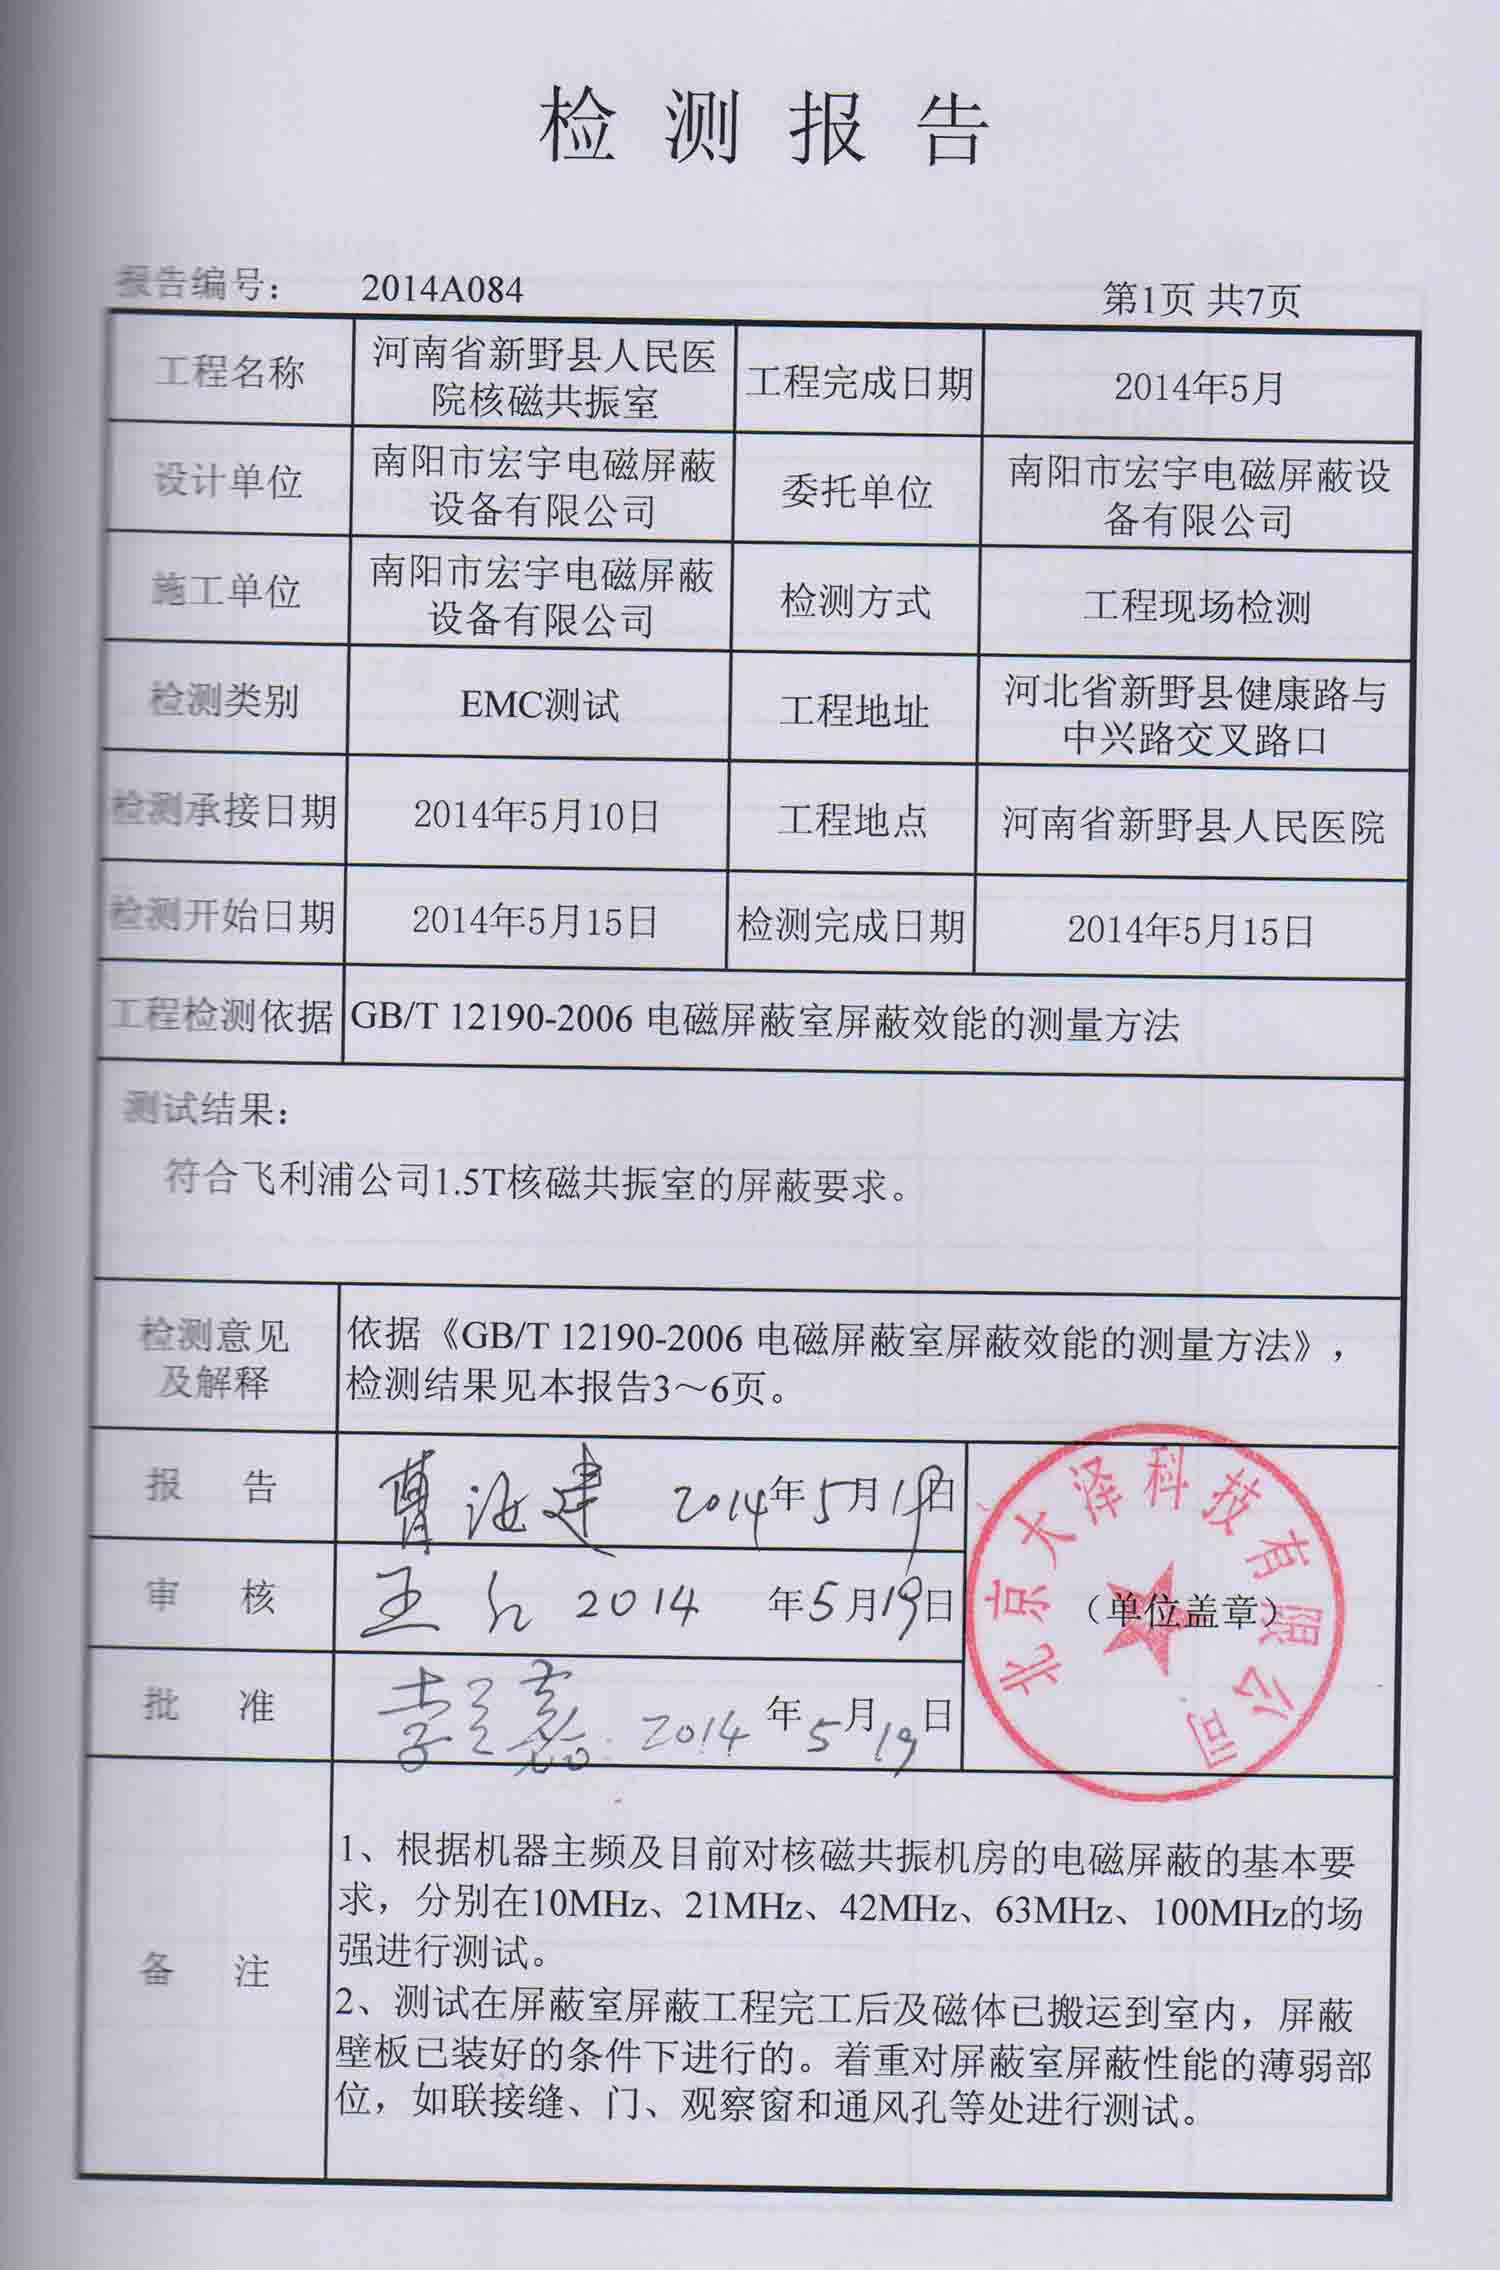 检测报告
报告编号： 2014A084 第1页 共7页
工程名称
河南省新野县人民医
院核磁共振室
工程完成日期
2014年5月
设计单位
南阳市宏宇电磁屏蔽
设备有限公司
委托单位
南阳市宏宇电磁屏蔽设
备有限公司
施工单位
南阳市宏宇电磁屏蔽
设备有限公司
检测方式
工程现场检测
检测类别
EMC测试
工程地址
河北省新野县健康路与
中兴路交叉路口
检测承接日期
2014年5月10日
工程地点
河南省新野县人民医院
检测开始日期
2014年5月15日
检测完成日期
2014年5月15日
工程检测依据
GB/T 12190-2006 电磁屏蔽室屏蔽效能的测量方法
测试结果：
符合飞利浦公司1.5T核磁共振室的屏蔽要求。
检测意见
及解释
依据《GB/T 12190-2006 电磁屏蔽室屏蔽效能的测量方法》，
检测结果见本报告3～6页。
报 告
2014年5月19日
审 核
2014 年5月19日
批 准
2014 年5月19日
（单位盖章）
北京大泽科技有限公司
备 注
1、根据机器主频及目前对核磁共振机房的电磁屏蔽的基本要
求，分别在10MHz、21MHz、42MHz、63MHz、100MHz的场
强进行测试。
2、测试在屏蔽室屏蔽工程完工后及磁体已搬运到室内，屏蔽
壁板已装好的条件下进行的。着重对屏蔽室屏蔽性能的薄弱部
位，如联接缝、门、观察窗和通风孔等处进行测试。